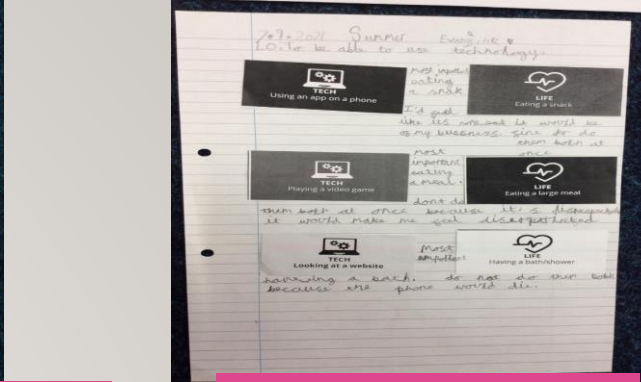 7.9.2021 Summer
L.O. to be able to use technology.
TECH
Using an app on a phone
most
eating
a snak
LIFE
Eating a snack
I'd
like it's it would be
of my to do
them both at
once
TECH
Playing a video game
most
important
eating
a meal.
LIFE
Eating a large meal
dont do
them both at once because it's
it would make me feel
TECH
Looking at a website
Most
LIFE
Having a bath/shower
a bath. do not do them both
because the phone would die.